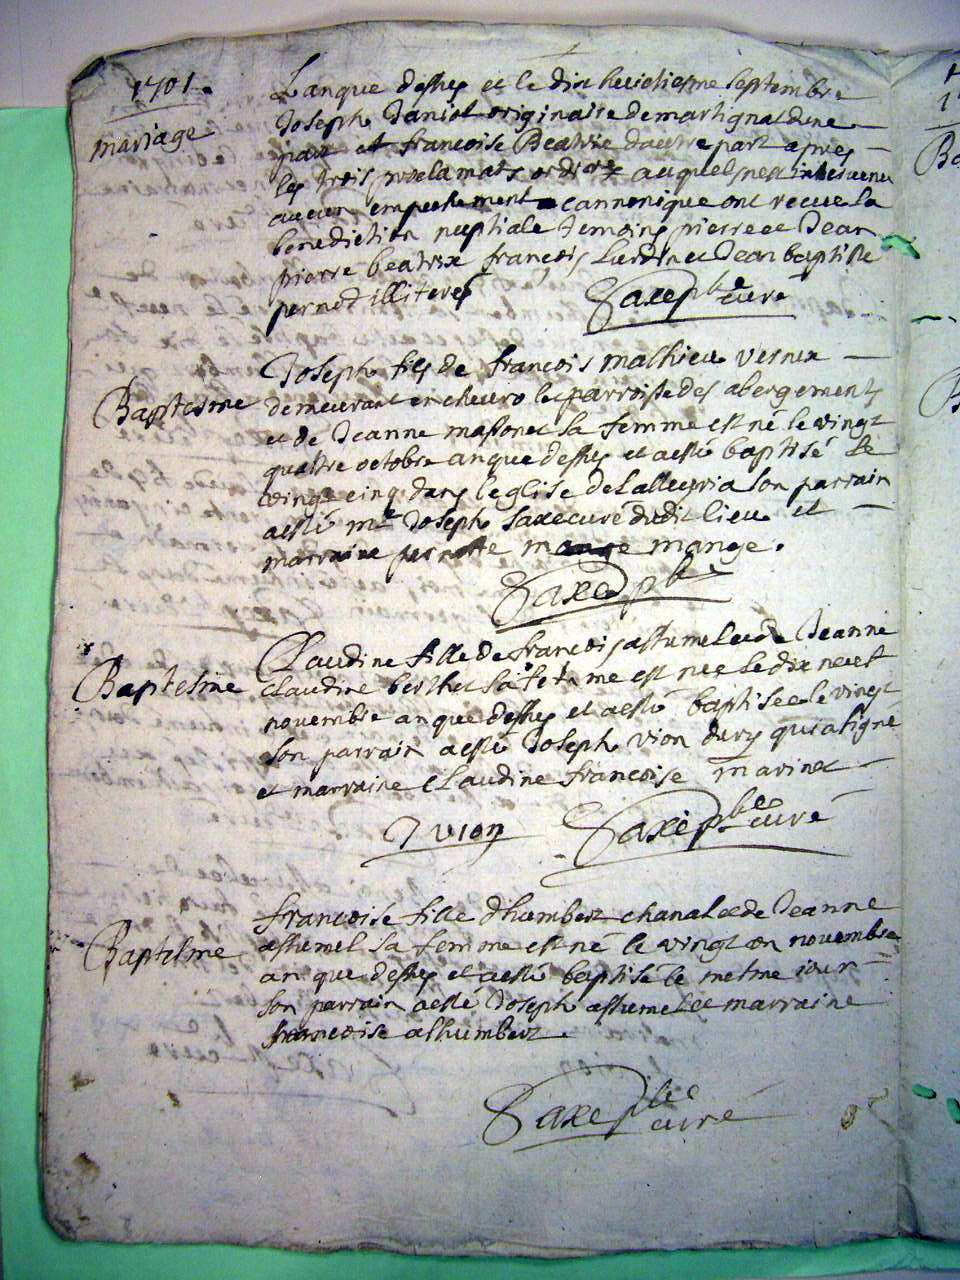 1701.
mariage
Lanque dessus et le dix huictiesme septembre
Joseph Janiot originaire de martignat dune
part et francoise Beatrix dautre part apres
les trois proclamats ordinrs auquels nest intervenu
aucun empechement cannonique ont recue la
benediction nuptiale temoins pierre et Jean
pierre beatrix francois et Jean baptiste
pernod illiteres
Saxe pbre curé
Baptesme
Joseph fils de francois mathieu vernu
demeurant en la parroisse des abergements
et de Jeanne masonet sa femme est né le vingt
quattre octobre an que dessus et a esté baptisé le
vingt cinq dans leglise de Lalleyria son parrain
a esté mre Joseph Saxe curé dudit lieu et
marraine pernette mange mange.
Saxe pbre
Baptesme
Claudine fille de francois assumel et de Jeanne
claudine berthet sa femme est nee le dix neuf
novembre an que dessus et a esté baptisee le vingt
son parrain a esté Joseph vion dury qui a signé
et marraine Claudine francoise marinet
J vion Saxe pbre curé
Baptesme
francoise fille dhumbert chanal et de Jeanne
assumel sa femme est né le vingt on novembre
an que dessus et a esté baptisé le mesme iour
son parrain a esté Joseph assumel et marraine
francoise alhumbert.
Saxe pbre curé